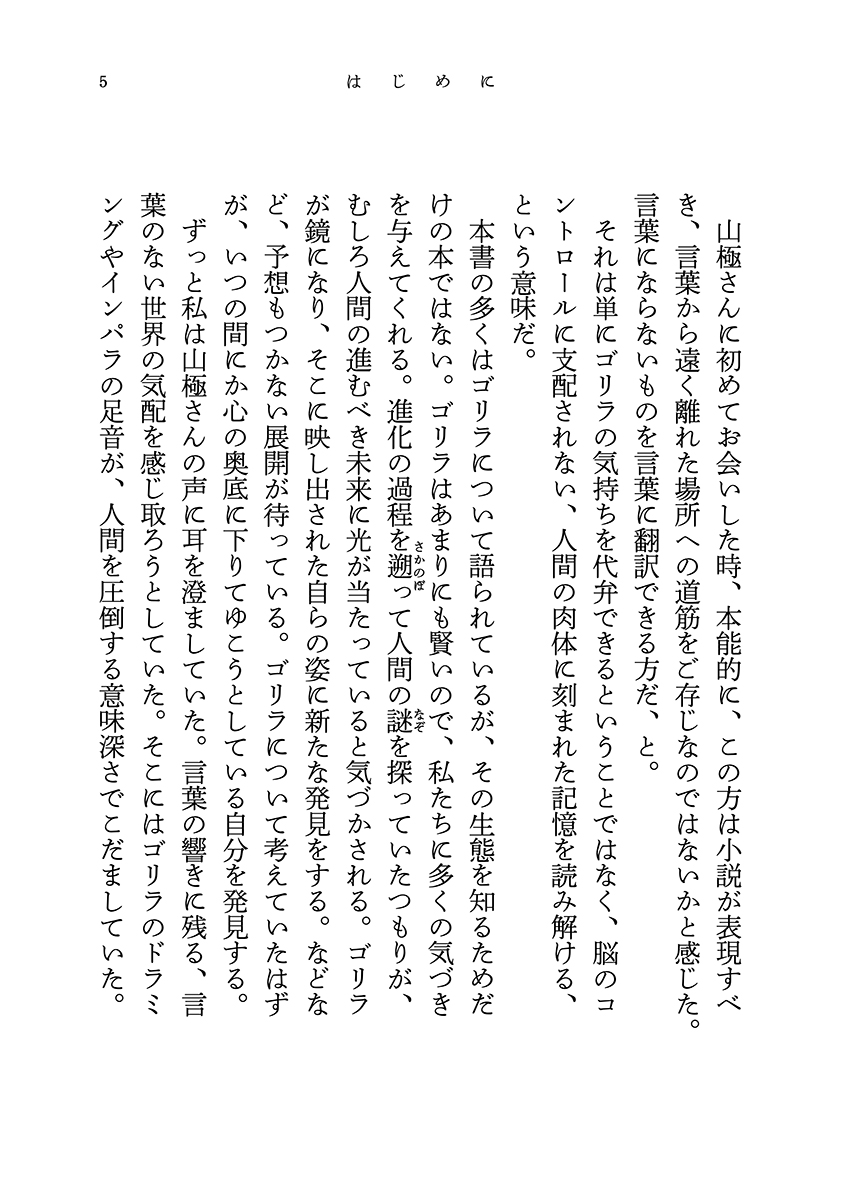 5
はじめに
山極さんに初めてお会いした時、本能的に、この方は小説が表現すべ
き、言葉から遠く離れた場所への道筋をご存じなのではないかと感じた。
言葉にならないものを言葉に翻訳できる方だ、と。
それは単にゴリラの気持ちを代弁できるということではなく、脳のコ
ントロールに支配されない、人間の肉体に刻まれた記憶を読み解ける、
という意味だ。
本書の多くはゴリラについて語られているが、その生態を知るためだ
けの本ではない。ゴリラはあまりにも賢いので、私たちに多くの気づき
を与えてくれる。進化の過程を遡さかのぼって人間の謎なぞを探っていたつもりが、
むしろ人間の進むべき未来に光が当たっていると気づかされる。ゴリラ
が鏡になり、そこに映し出された自らの姿に新たな発見をする。などな
ど、予想もつかない展開が待っている。ゴリラについて考えていたはず
が、いつの間にか心の奥底に下りてゆこうとしている自分を発見する。
ずっと私は山極さんの声に耳を澄ましていた。言葉の響きに残る、言
葉のない世界の気配を感じ取ろうとしていた。そこにはゴリラのドラミ
ングやインパラの足音が、人間を圧倒する意味深さでこだましていた。